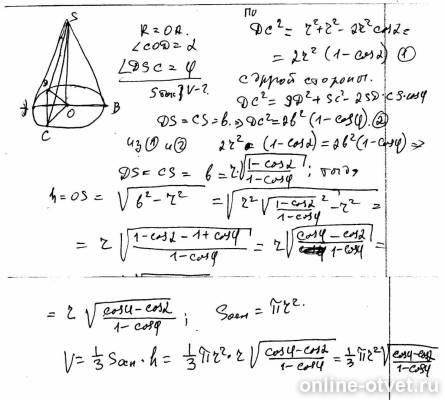 S
A
B
O
C
D
R = OA.
∠COD = α
∠DSC = φ
Sбок } V - ?
По
DC² = r² + r² - 2r² cos α =
= 2r² (1 - cos α) ①
С другой стороны.
DC² = SD² + SC² - 2SD · CS · cos φ
DS = CS = b. ⇒ DC² = 2b² (1 - cos φ). ②
из ① и ② 2r² (1 - cos α) = 2b² (1 - cos φ) ⇒
DS = CS = b = r √((1 - cos α)/(1 - cos φ)); тогда,
h = OS = √(b² - r²) = √(r² √((1 - cos α)/(1 - cos φ))² - r²) =
= r √((1 - cos α - 1 + cos φ)/(1 - cos φ)) = r √((cos φ - cos α)/(1 - cos φ)) =
= r √((cos φ - cos α)/(1 - cos φ)); Sосн = πr².
V = 1/3 Sосн · h = 1/3 πr² · r √((cos φ - cos α)/(1 - cos φ)) = 1/3 πr³ √((cos φ - cos α)/(1 - cos φ))
online-otvet.ru